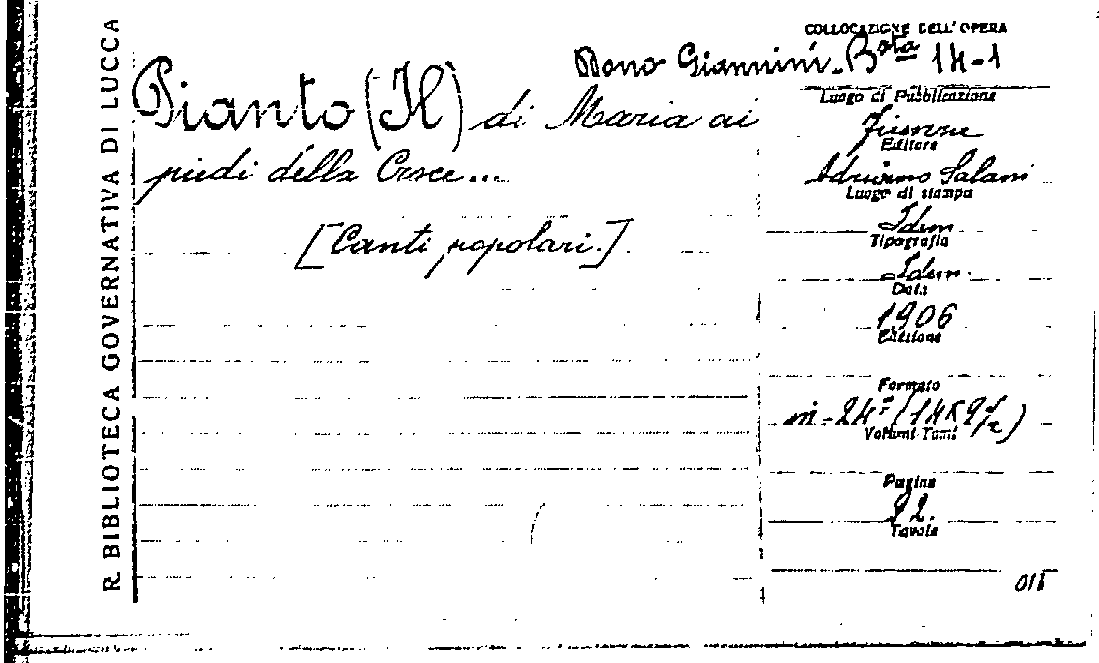 R. BIBLIOTECA GOVERNATIVA DI LUCCA
COLLOCAZIONE DELL'OPERA
Dono Giannini. Bta 14-1
Pianto (Il) di Maria ai
piedi della Croce...
[Canti popolari.]
Luogo di Pubblicazione
Firenze
Editore
Adriano Salani
Luogo di stampa
Idem
Tipografia
Idem.
Data
1906
Edizione
Formato
in-24º
Volumi Tomi
Pagine
22.
Tavole